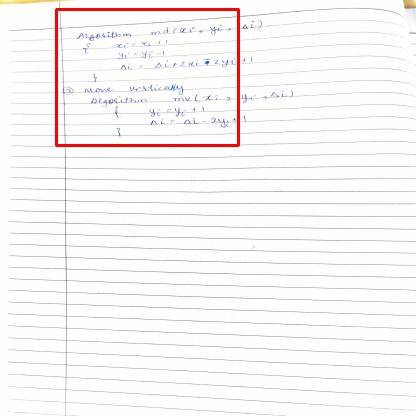 Algorithm md(xi, yi, Δi)
{ xi = xi + 1
yi = yi - 1
Δi = Δi + 2xi - 2yi + 1
}
③ Move vertically
Algorithm mv(xi, yi, Δi)
{ yi = yi + 1
Δi = Δi - 2yi + 1
}